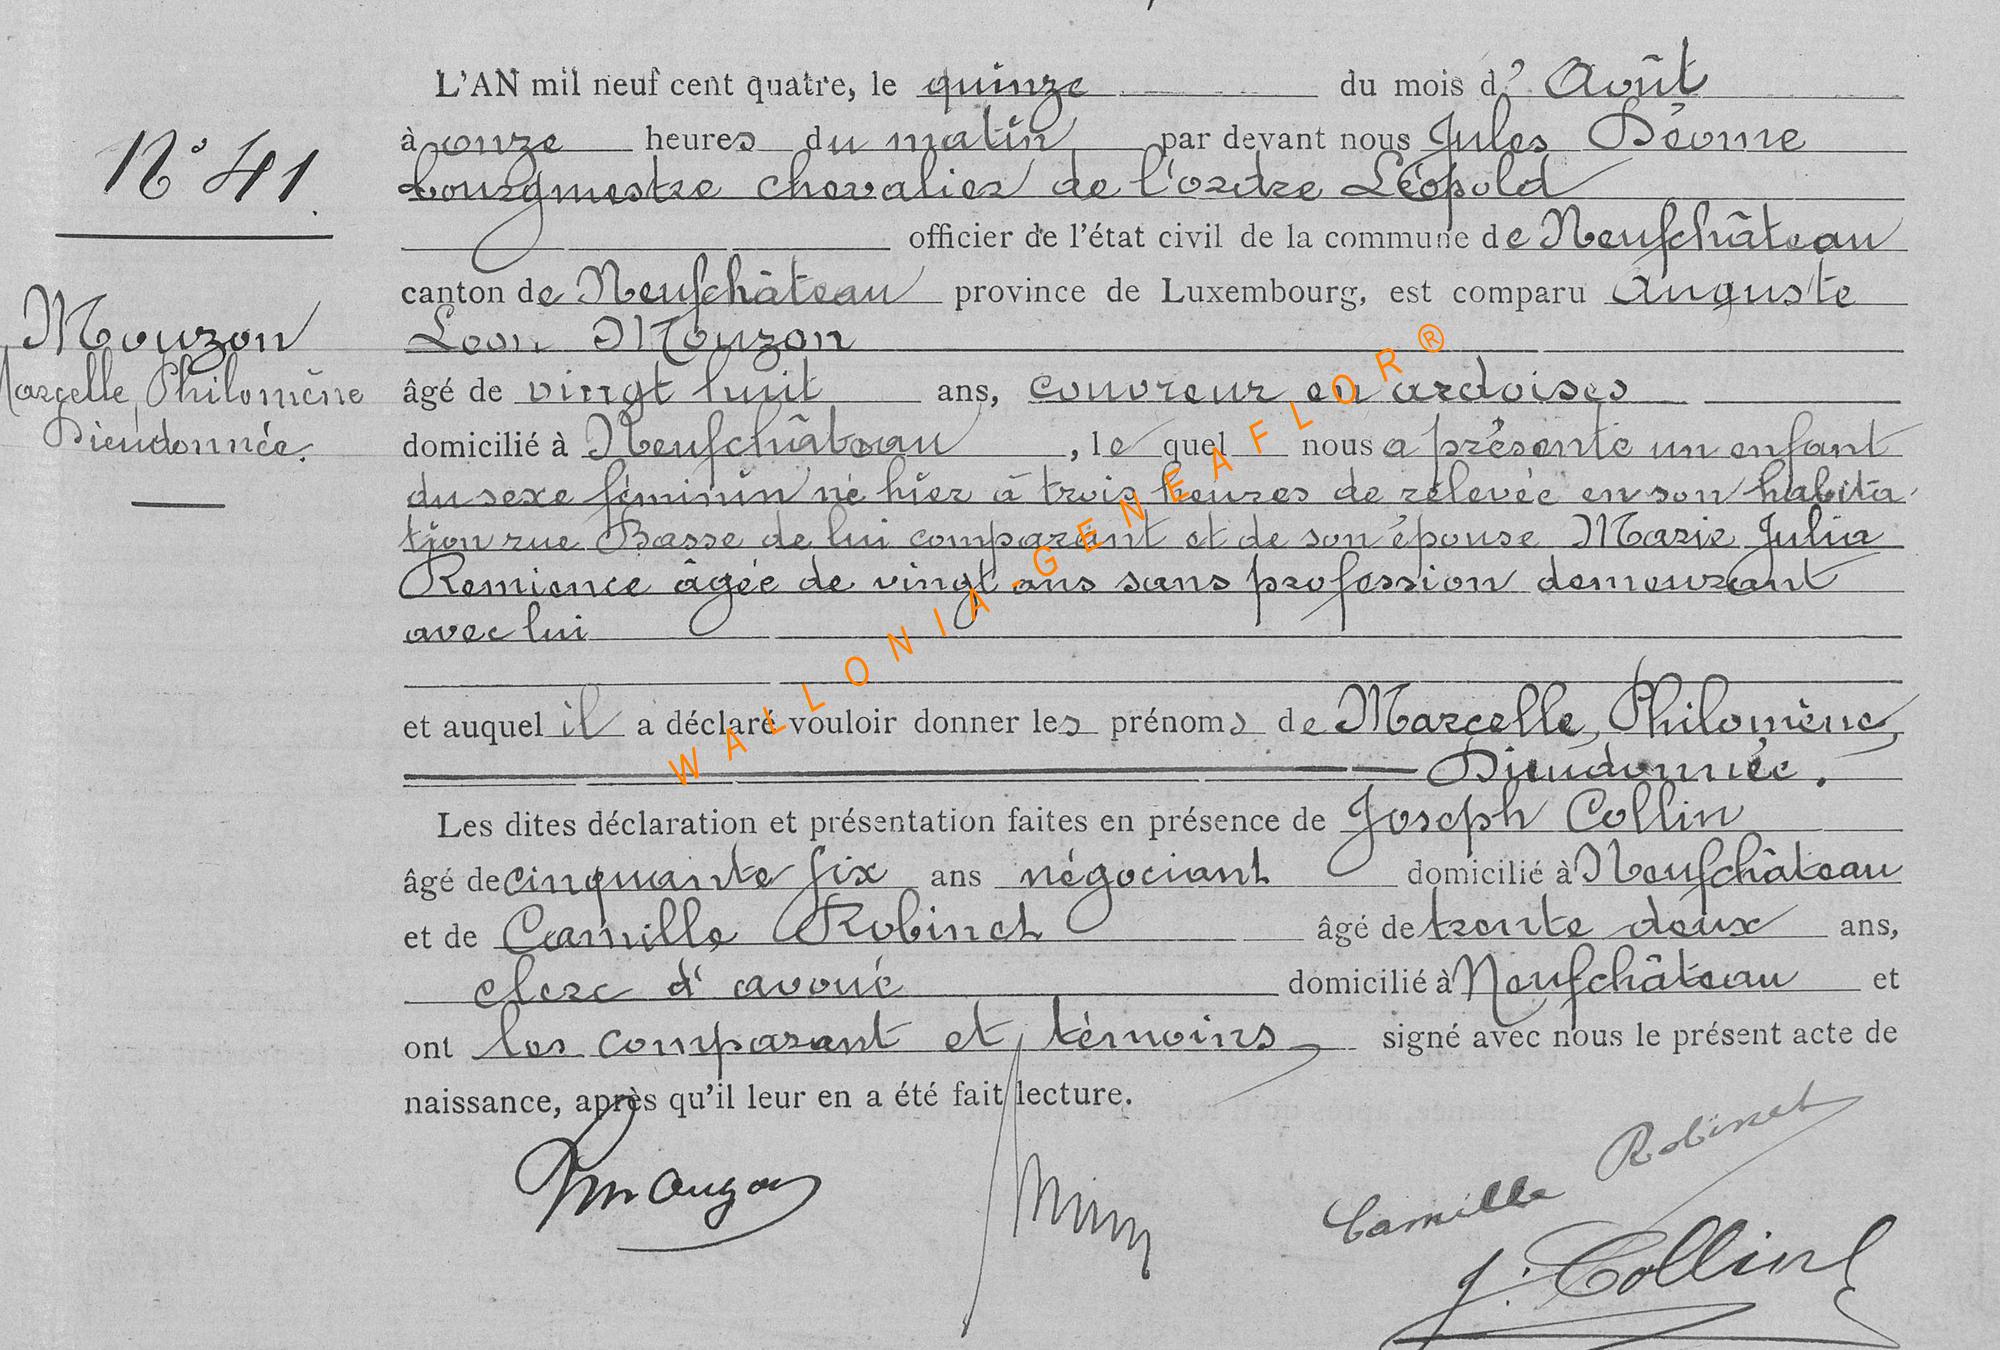 L'AN mil neuf cent quatre, le quinze du mois d'Août
à onze heures du matin par devant nous Jules Déome
bourgmestre chevalier de l'ordre Léopold
officier de l'état civil de la commune de Neufchâteau
canton de Neufchâteau province de Luxembourg, est comparu Auguste
Léon Mouzon
âgé de vingt huit ans, couvreur en ardoises
domicilié à Neufchâteau, le quel nous a présenté un enfant
du sexe féminin né hier à trois heures de relevée en son habita
tion rue Basse de lui comparant et de son épouse Marie Julia
Remience âgée de vingt ans sans profession demeurant
avec lui
et auquel il a déclaré vouloir donner les prénoms de Marcelle, Philomène,
Dieudonnée.
Les dites déclaration et présentation faites en présence de Joseph Collin
âgé de cinquante six ans négociant domicilié à Neufchâteau
et de Camille Robinet âgé de trente deux ans,
clerc d'avoué domicilié à Neufchâteau et
ont les comparant et témoins signé avec nous le présent acte de
naissance, après qu'il leur en a été fait lecture.
N° 41
Mouzon
Marcelle, Philomène
Dieudonnée.
Mouzon
Camille Robinet
J. Collin
WALLONIA-GENEAFLOR®